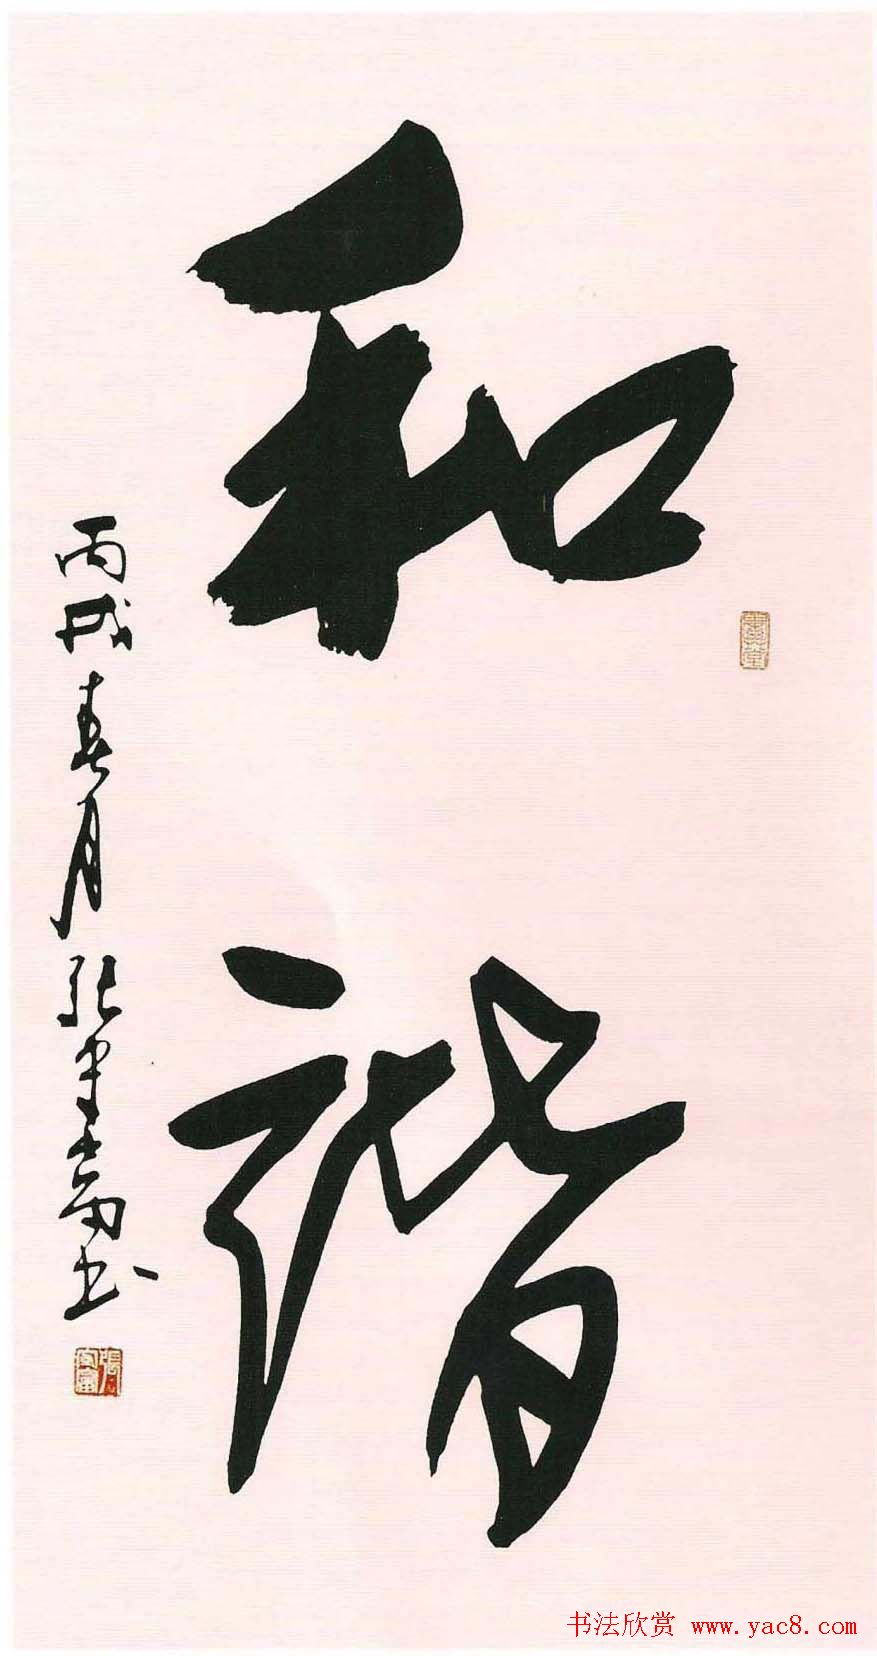 和谐
丙戌春月张守富书
书法欣赏 www.yac8.com